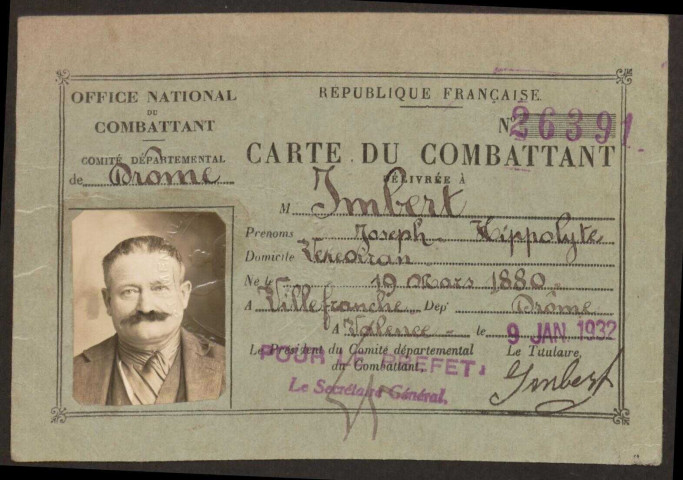 OFFICE NATIONAL
DU
COMBATTANT
COMITÉ DÉPARTEMENTAL
de Drôme
RÉPUBLIQUE FRANÇAISE.
N° 26391
CARTE DU COMBATTANT
DÉLIVRÉE À
M Imbert
Prénoms Joseph Hippolyte
Domicile Vercoiran
Né le 19 Mars 1880
A Villefranche Dep^t Drôme
A Valence le 9 JAN 1932
Le Président du Comité départemental
du Combattant,
Le Titulaire,
POUR LE PREFET:
Le Secrétaire Général,
Imbert